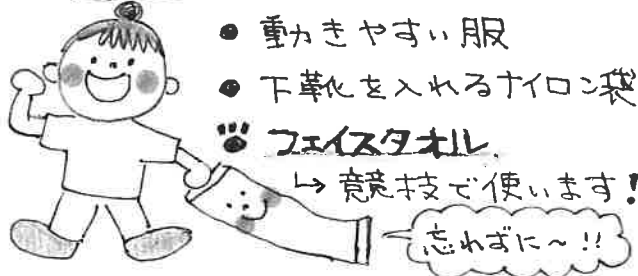 ● 動きやすい服
● 下靴を入れるナイロン袋
フェイスタオル
↳ 競技で使います!
忘れずに〜!!